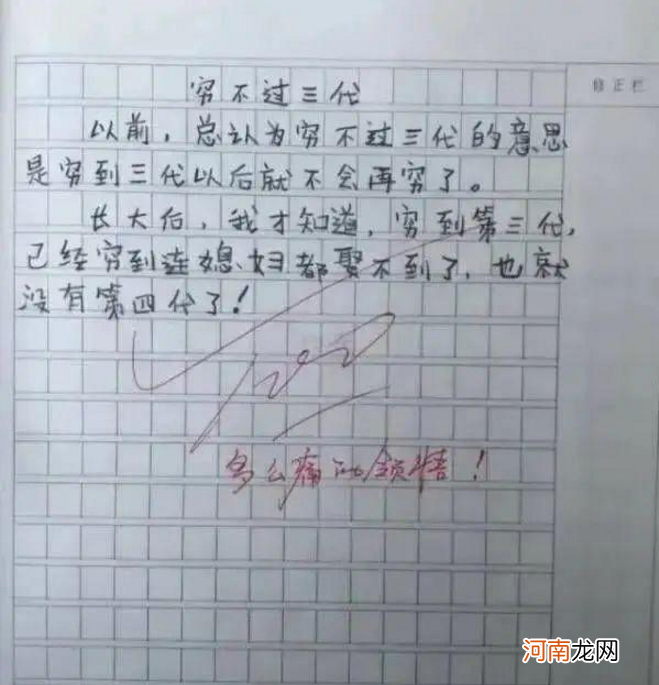 修正栏
穷不过三代
以前，总认为穷不过三代的意思
是穷到三代以后就不会再穷了。
长大后，我才知道，穷到第三代，
已经穷到连媳妇都娶不到了，也就
没有第四代了！
100
多么痛的领悟！
河南龙网